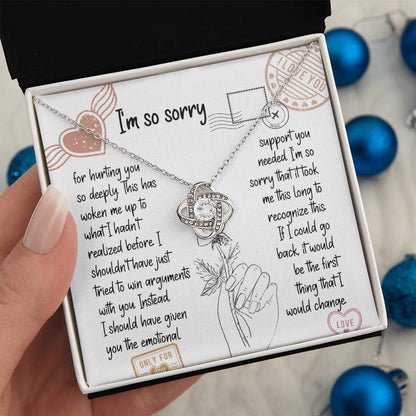 I'm so sorry
for hurting you
so deeply. This has
woken me up to
what I hadn't
realized before. I
shouldn't have just
tried to win arguments
with you. Instead,
I should have given
you the emotional
support you
needed. I'm so
sorry that it took
me this long to
recognize this.
If I could go
back, it would
be the first
thing that I
would change.
I LOVE YOU
LOVE
ONLY FOR